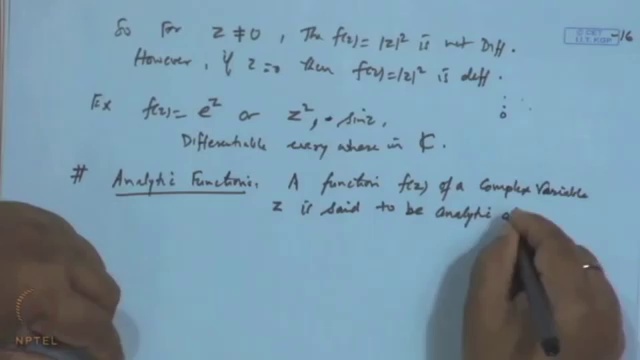 So for z ≠ 0, The f(z) = |z|² is not Diff.
However, if z = 0 then f(z) = |z|² is diff.
Ex f(z) = e^z or z², sin z,
Differentiable every where in ℂ.
# Analytic Functions. A function f(z) of a Complex Variable
z is said to be analytic
© CET
I.I.T. KGP
-16
NPTEL